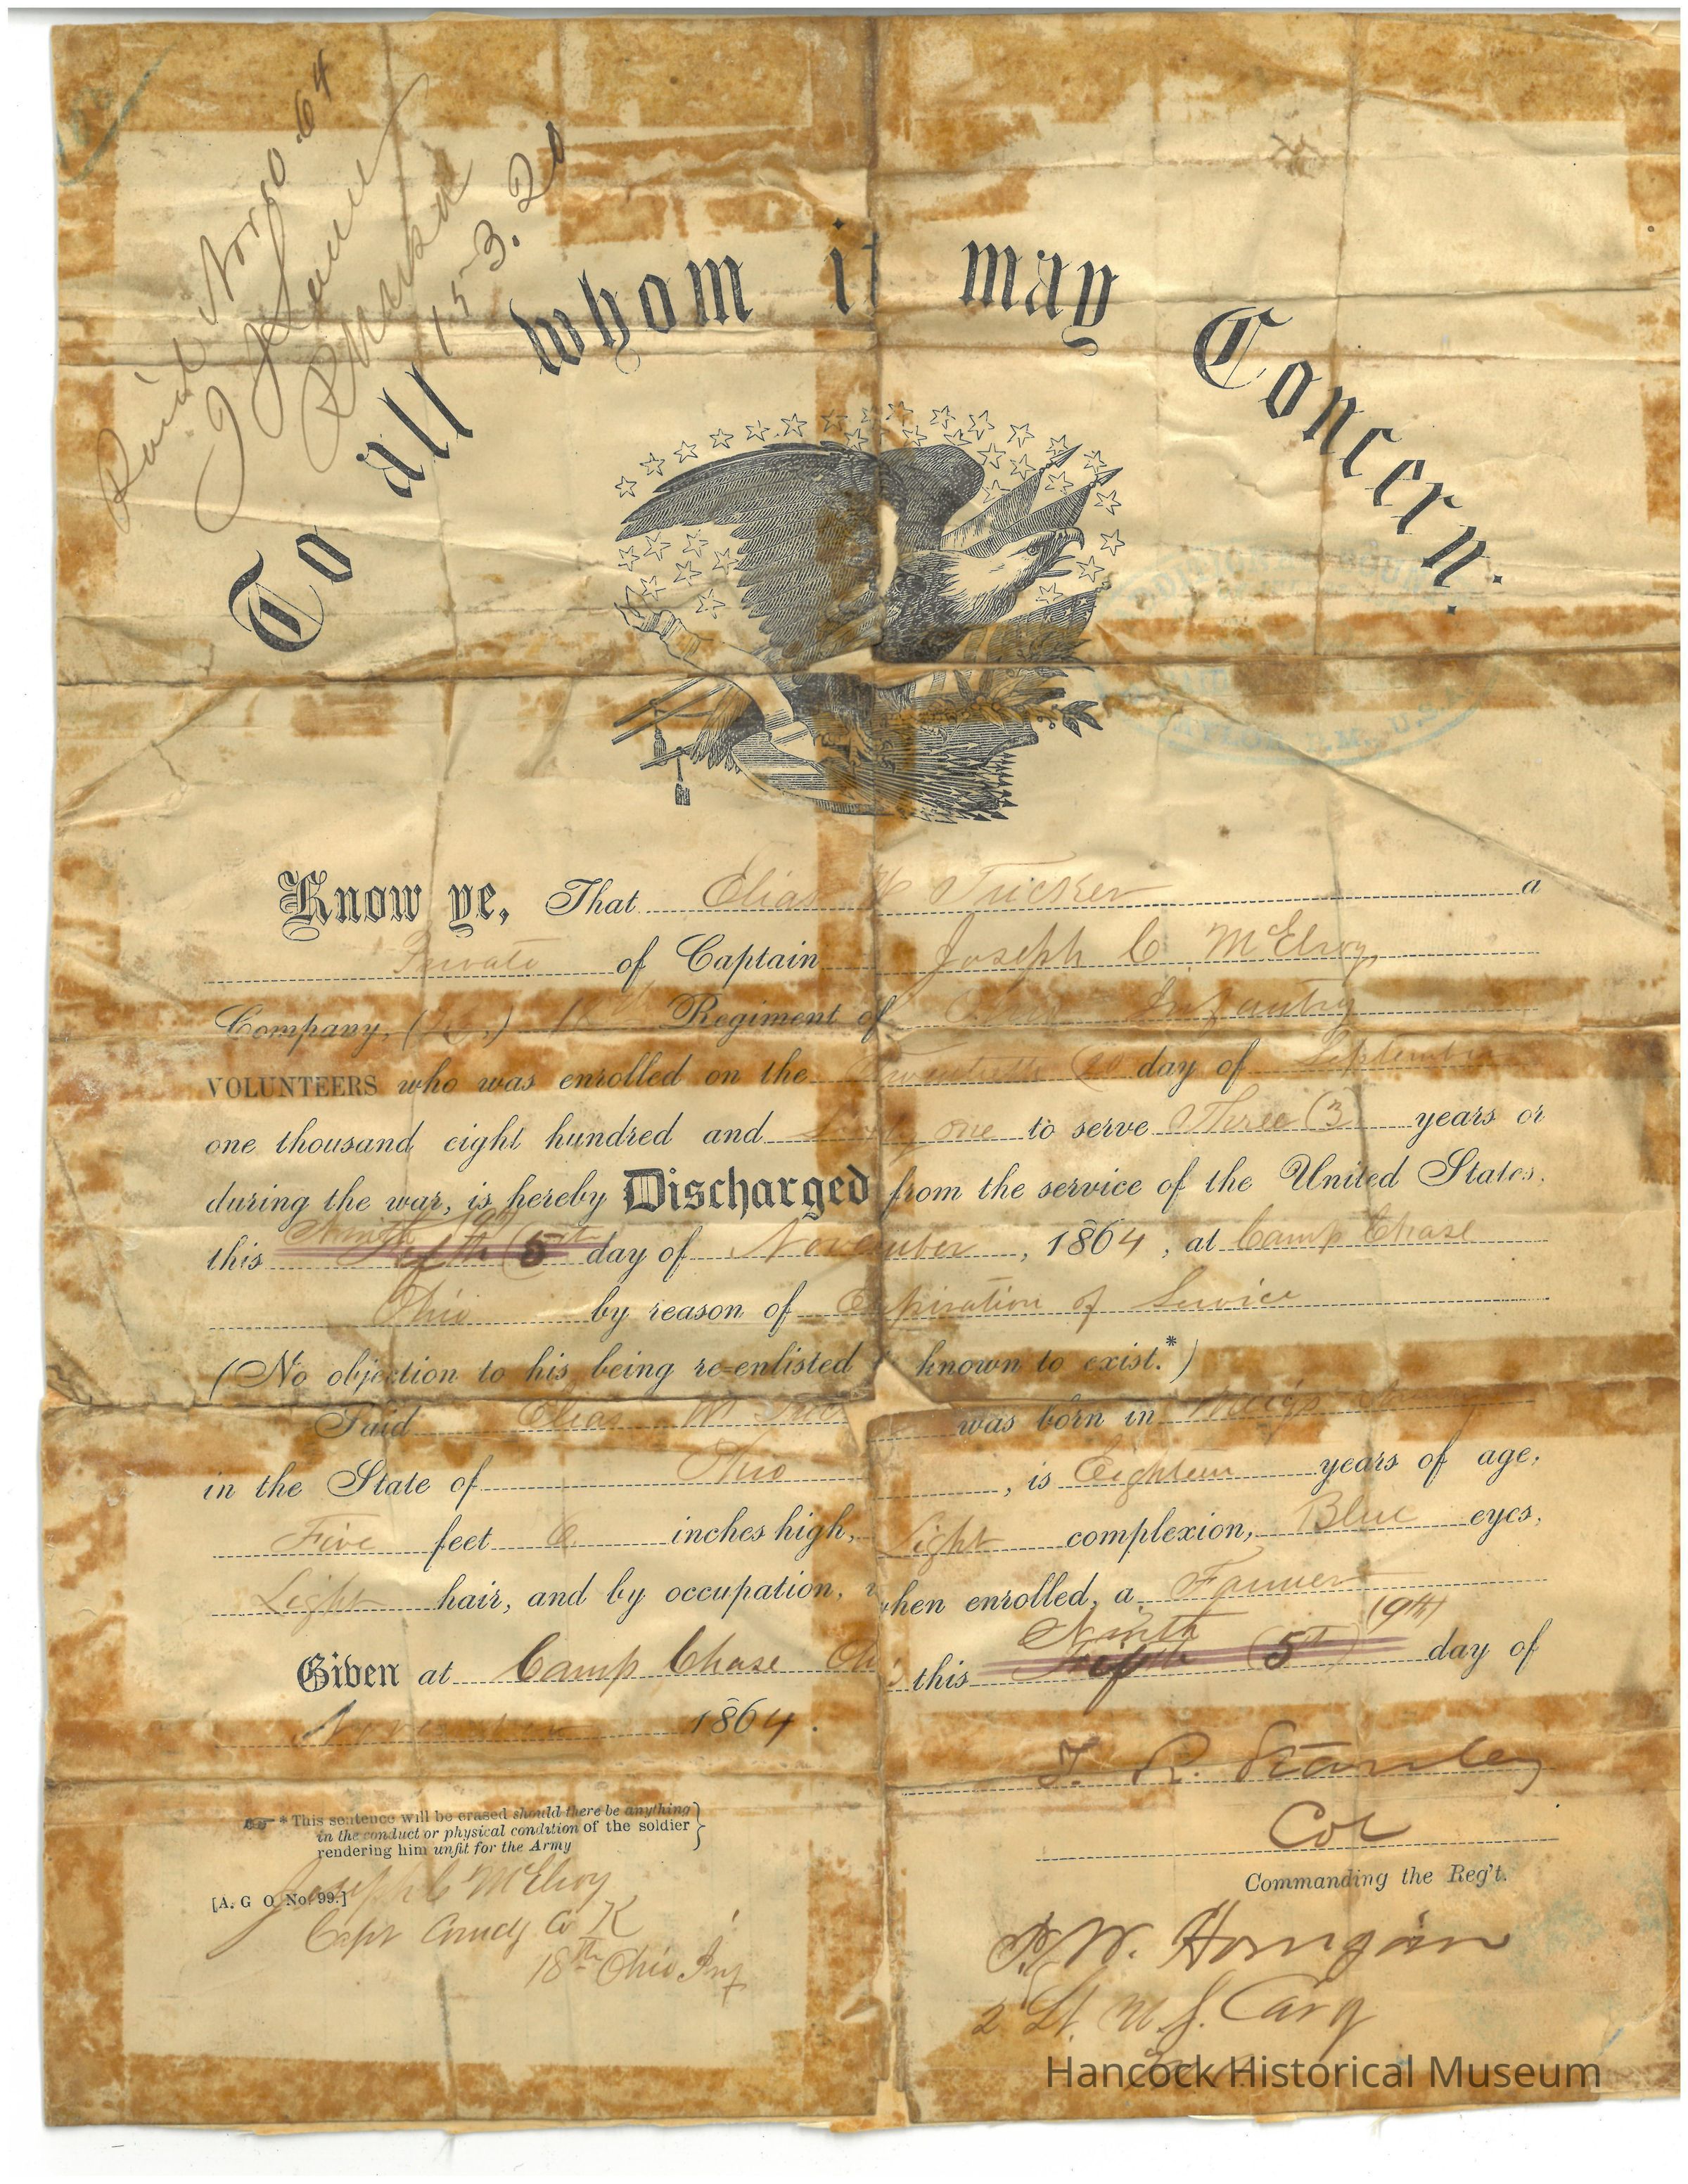 Paid Nov 10. 64
153.20
To all whom it may Concern.
ADDITIONAL BOUN
PAID
TAYLOR P.M., U.S.A.
Know ye, That Elias W Tucker a
Private of Captain Joseph C. McElroy,
Company, (K.) 18th Regiment of Ohio Infantry
VOLUNTEERS who was enrolled on the Twentieth (20 day of September
one thousand eight hundred and Sixty one to serve Three (3) years or
during the war, is hereby Discharged from the service of the United States,
Ninth (9th)
this Fifth (5th day of November, 1864, at Camp Chase
Ohio by reason of Expiration of Service
(No objection to his being re-enlisted known to exist.*)
Said Elias W Tuc was born in Meigs
in the State of Ohio, is Eighteen years of age,
Five feet 6 inches high, Light complexion, Blue eyes,
Light hair, and by occupation, when enrolled, a Farmer
Ninth (9th)
Given at Camp Chase Oh this Fifth (5th) day of
November 1864.
T. R. Stanley
Col
Commanding the Reg't.
* This sentence will be erased should there be anything
in the conduct or physical condition of the soldier
rendering him unfit for the Army
[A. G O. No. 99.]
Joseph C McElroy
Capt Comdg Co K
18th Ohio Inf
W.
2 Lt.
Hancock Historical Museum